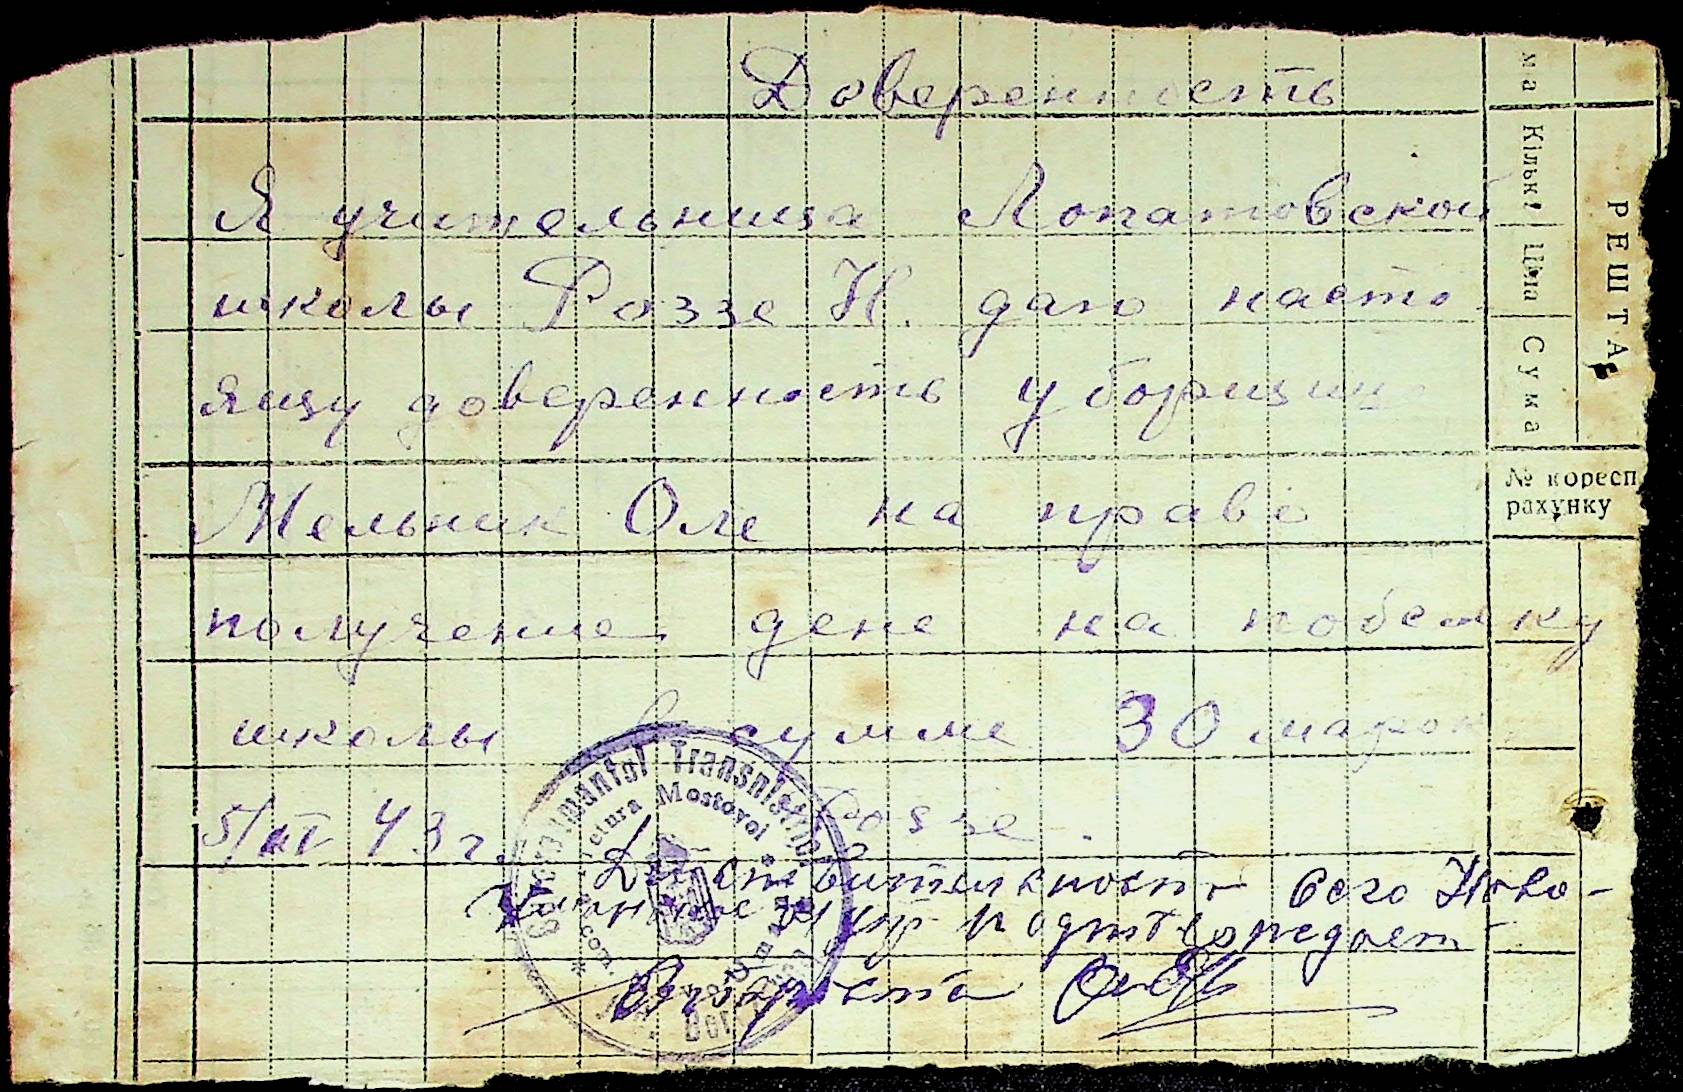 Доверенность
Я учительница Лопатовской
школы Роззе Н. даю насто
ящу доверенность уборщице
Мельник Оле на право
получение дене на побелку
школы в сумме 30 марок
5/VI 43 г. Роззе.
Действительность всего Ново-
подтверждает
Староста
Guvernământul Transnistriei
Mostovoi
ма
Кільк.
Ціна
Сума
РЕШТА
№ кореспрахунку